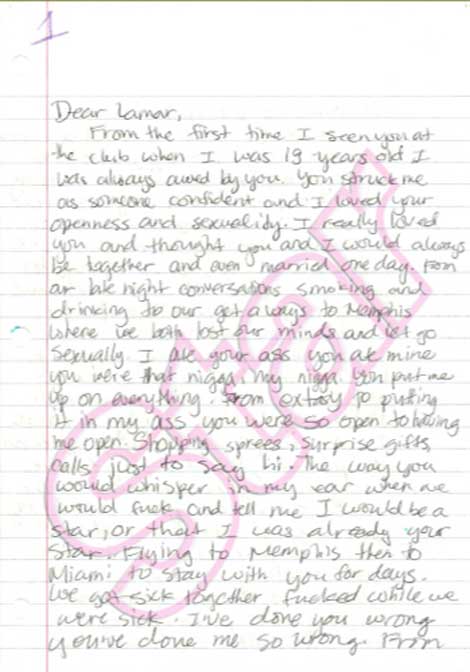 1
Dear Lamar,
From the first time I seen you at
the club when I was 19 years old I
was always awed by you. You struck me
as someone confident and I loved your
openness and sexuality. I really loved
you and thought you and I would always
be together and even married one day. From
ar late night conversations smoking and
drinking to our getaways to Memphis
where we both lost our minds and let go
sexually I ate your ass you ate mine
you were that nigga, my nigga. You put me
up on everything. From extasy to putting
it in my ass you were so open to having
me open. Shopping sprees, surprise gifts,
calls just to say hi. The way you
would whisper in my ear when we
would fuck and tell me I would be a
star, or that I was already your
star. Flying to Memphis then to
Miami to stay with you for days.
We got sick together fucked while we
were sick. I've done you wrong
you've done me so wrong. From
Star